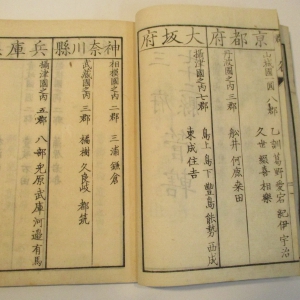 京都府
山城國一圓 八郡
乙訓 葛野 愛宕 紀伊 宇治
久世 綴喜 相樂
丹波國之内 三郡
船井 何鹿 桑田
大坂府
攝津國之内 七郡
島上 島下 豐島 能勢 西成
東成 住吉
神奈川縣
相模國之内 二郡
三浦 鎌倉
武藏國之内 三郡
橘樹 久良岐 都筑
兵庫縣
攝津國之内 五郡
八部 菟原 武庫 河邊 有馬